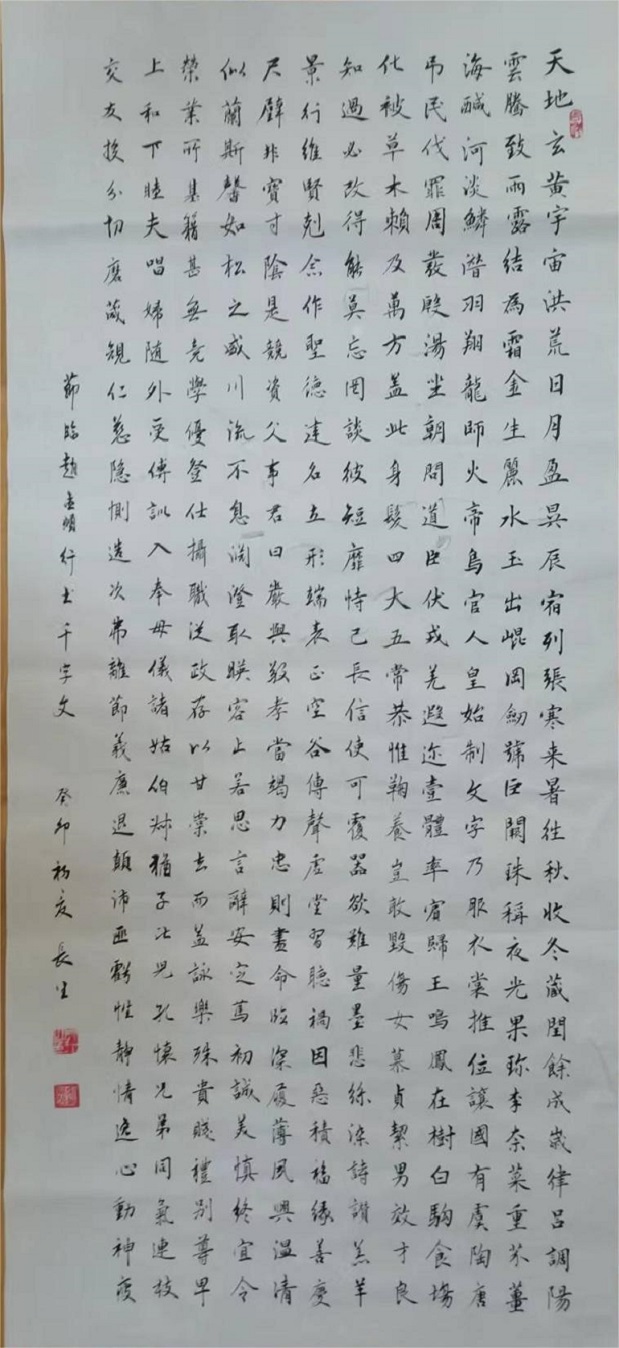 天地玄黄宇宙洪荒日月盈昃辰宿列張寒来暑往秋收冬藏閏餘成歲律吕調陽
雲騰致雨露結為霜金生麗水玉出崐岡劒號巨闕珠稱夜光果珍李柰菜重芥薑
海鹹河淡鱗潛羽翔龍師火帝鳥官人皇始制文字乃服衣裳推位讓國有虞陶唐
弔民伐罪周發殷湯坐朝問道臣伏戎羌遐迩壹體率賓歸王鳴鳳在樹白駒食場
化被草木賴及萬方盖此身髮四大五常恭惟鞠養豈敢毀傷女慕貞絜男效才良
知過必改得能莫忘罔談彼短靡恃己長信使可覆器欲難量墨悲絲染詩讚羔羊
景行維賢剋念作聖德建名立形端表正空谷傳聲虛堂習聽禍因惡積福緣善慶
尺璧非寶寸陰是競資父事君曰嚴與敬孝當竭力忠則盡命臨深履薄夙興温凊
似蘭斯馨如松之盛川流不息淵澄取暎容止若思言辭安定篤初誠美慎終宜令
榮業所基籍甚無竟學優登仕攝職從政存以甘棠去而益詠樂殊貴賤禮别尊卑
上和下睦夫唱婦隨外受傅訓入奉母儀諸姑伯叔猶子比兒孔懷兄弟同氣連枝
交友投分切磨箴規仁慈隱惻造次弗離節義廉退顛沛匪虧性靜情逸心動神疲
節臨趙孟頫行書千字文 癸卯初夏 長生